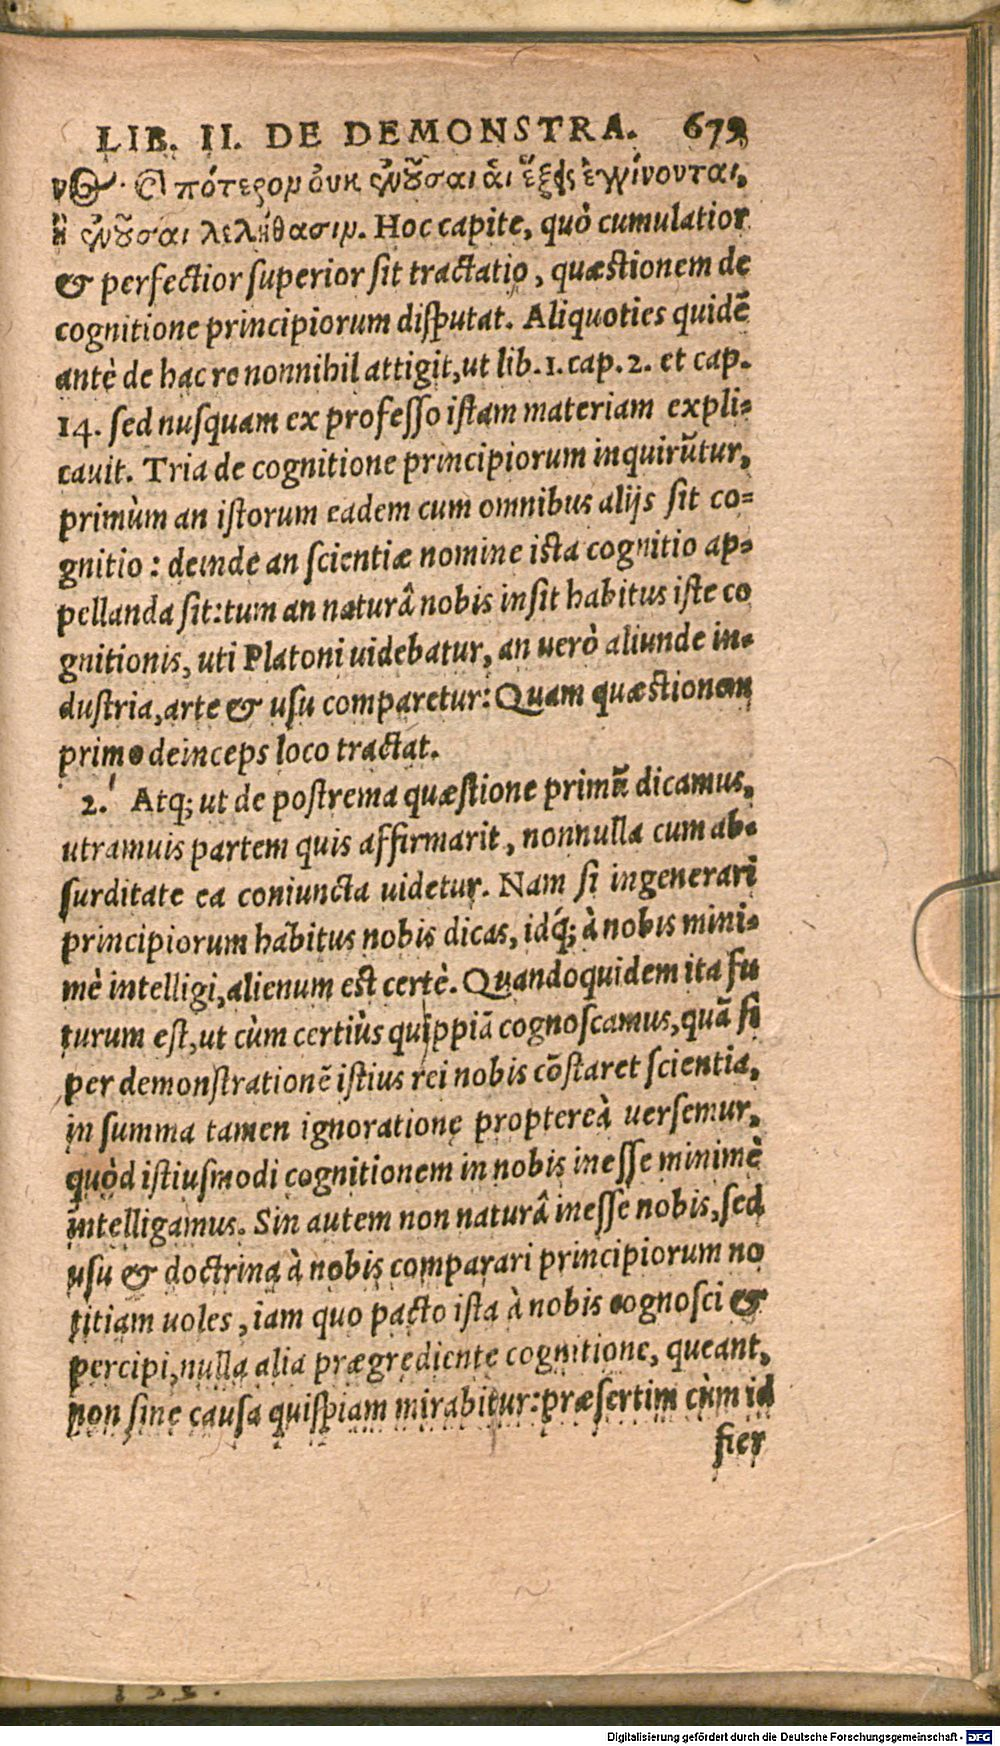 LIB. II. DE DEMONSTRA. 679
νος. καὶ πότερον οὐκ ἐνοῦσαι αἱ ἕξεις ἐγγίνονται,
ἢ ἐνοῦσαι λελήθασιν. Hoc capite, quò cumulatior
& perfectior superior sit tractatio, quæstionem de
cognitione principiorum disputat. Aliquoties quidē
antè de hac re nonnihil attigit, ut lib. 1. cap. 2. et cap.
14. sed nusquam ex professo istam materiam expli-
cauit. Tria de cognitione principiorum inquirūtur,
primùm an istorum eadem cum omnibus alijs sit co-
gnitio: deinde an scientiæ nomine ista cognitio ap-
pellanda sit: tum an naturâ nobis insit habitus iste co
gnitionis, uti Platoni uidebatur, an uerò aliunde in-
dustria, arte & usu comparetur: Quam quæstionem
primo deinceps loco tractat.
2. Atq; ut de postrema quæstione primū dicamus,
utramuis partem quis affirmarit, nonnulla cum ab-
surditate ea coniuncta uidetur. Nam si ingenerari
principiorum habitus nobis dicas, idq́; à nobis mini-
mè intelligi, alienum est certè. Quandoquidem ita fu
turum est, ut cùm certiùs quippiā cognoscamus, quā si
per demonstrationē istius rei nobis cōstaret scientia,
in summa tamen ignoratione proptereà uersemur,
quòd istiusmodi cognitionem in nobis inesse minimè
intelligamus. Sin autem non naturâ inesse nobis, sed
usu & doctrina à nobis comparari principiorum no
titiam uoles, iam quo pacto ista à nobis cognosci &
percipi, nulla alia prægrediente cognitione, queant,
non sine causa quispiam mirabitur: præsertim cùm id
fier
Digitalisierung gefördert durch die Deutsche Forschungsgemeinschaft - DFG